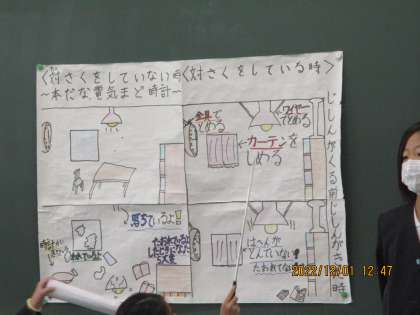 〈対さくをしていない時
〜本だな、電気、まど、時計〜
〈対さくをしている時〉
じしんがくる前
じしんがきた時
金具で
とめる
ワイヤー
でとめる
←カーテンを
しめる
落ちているよ
われているよ
たおれて
たら大変
はへんが
とんでいない
たおれてない
2022/12/01 12:47